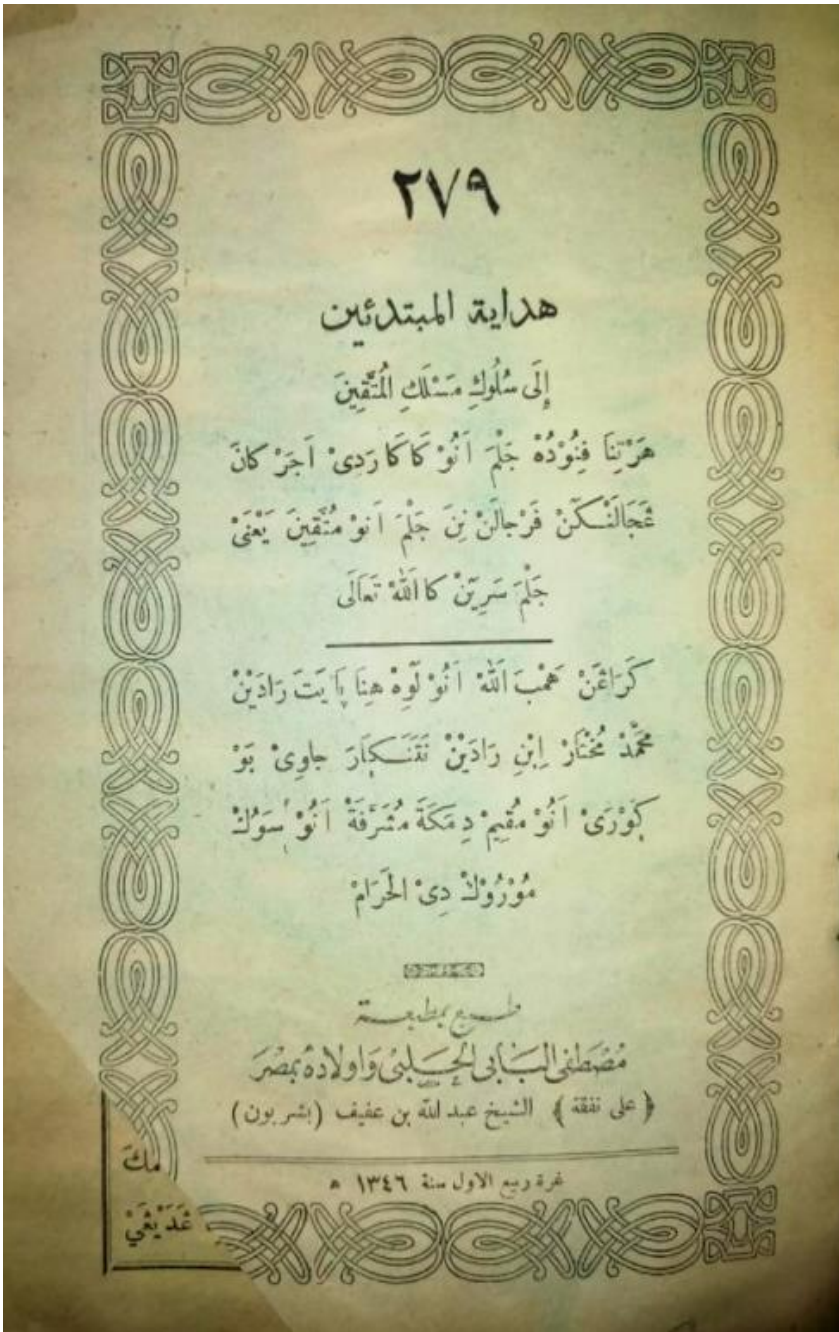 ٢٧٩
هداية المبتدئين
إِلَى سُلُوكِ مَسْلَكِ الْمُتَّقِينَ
هَرْتِنَا فِنُوْدُهْ جَلْمَ اَنُوْ كَاكَا رَدِىْ اَجَرْ كَانَ
ڠَجَالَنْكَنْ فَرْجالَنْ نِنَ جَلْمَ اَنوْ مُتَّقِينَ يَعْنَىْ
جَلْمَ سَرِيَنْ كا اَللهْ تَعَالَى
كَرَاڠَنْ هَمْبَ اَللهْ اَنُوْ لَوِهْ هِنَا پَايَتَ رَادَيْنْ
مُحَمَّدْ مُخْتَارْ اِبْنِ رَادَيْنْ نَتَنَكَارَ جاوِىْ بَوْ
كَوْرَىْ اَنُوْ مُقِيمْ دِمَكَةَ مُشَرَّفَةْ اَنُوْ سَوُكْ
مُوْرُوْكْ دِىْ الْحَرَامْ
طبع بمطبعة
مُصْطَفَى الْبَابِى الْحَلَبِىْ وَاَوْلَادُهُ بِمِصْرَ
﴿ على نفقة ﴾ الشيخ عبد الله بن عفيف (بشربون)
غرة ربيع الاول سنة ١٣٤٦ ه
مكَ
ڠَدَيْڤَيْ